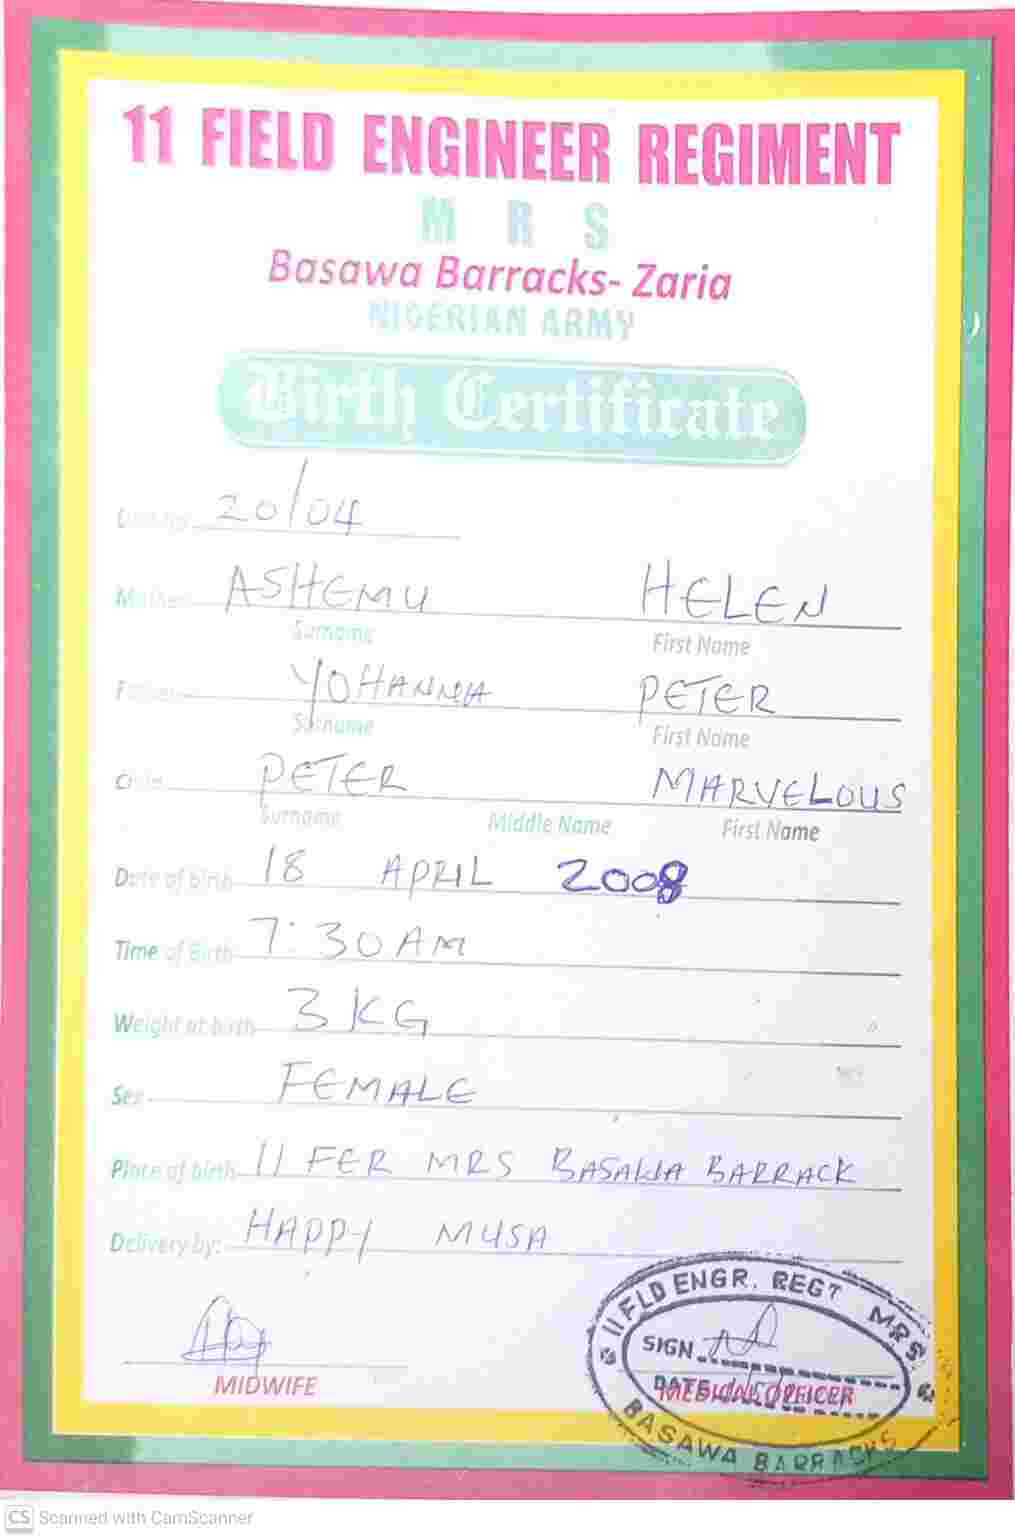 11 FIELD ENGINEER REGIMENT
M R S
Basawa Barracks- Zaria
NIGERIAN ARMY
Birth Certificate
20/04
Mother ASHEMU HELEN
Surname First Name
Father YOHANNA PETER
Surname First Name
Child PETER MARVELOUS
Surname Middle Name First Name
Date of birth 18 APRIL 2008
Time of Birth 7:30AM
Weight at birth 3KG
Sex FEMALE
Place of birth 11 FER MRS BASAWA BARRACK
Delivery by: HAPPY MUSA
11 FLD ENGR. REGT MRS.
SIGN
DATE
BASAWA BARRACKS
MIDWIFE
MEDICAL OFFICER
CS Scanned with CamScanner